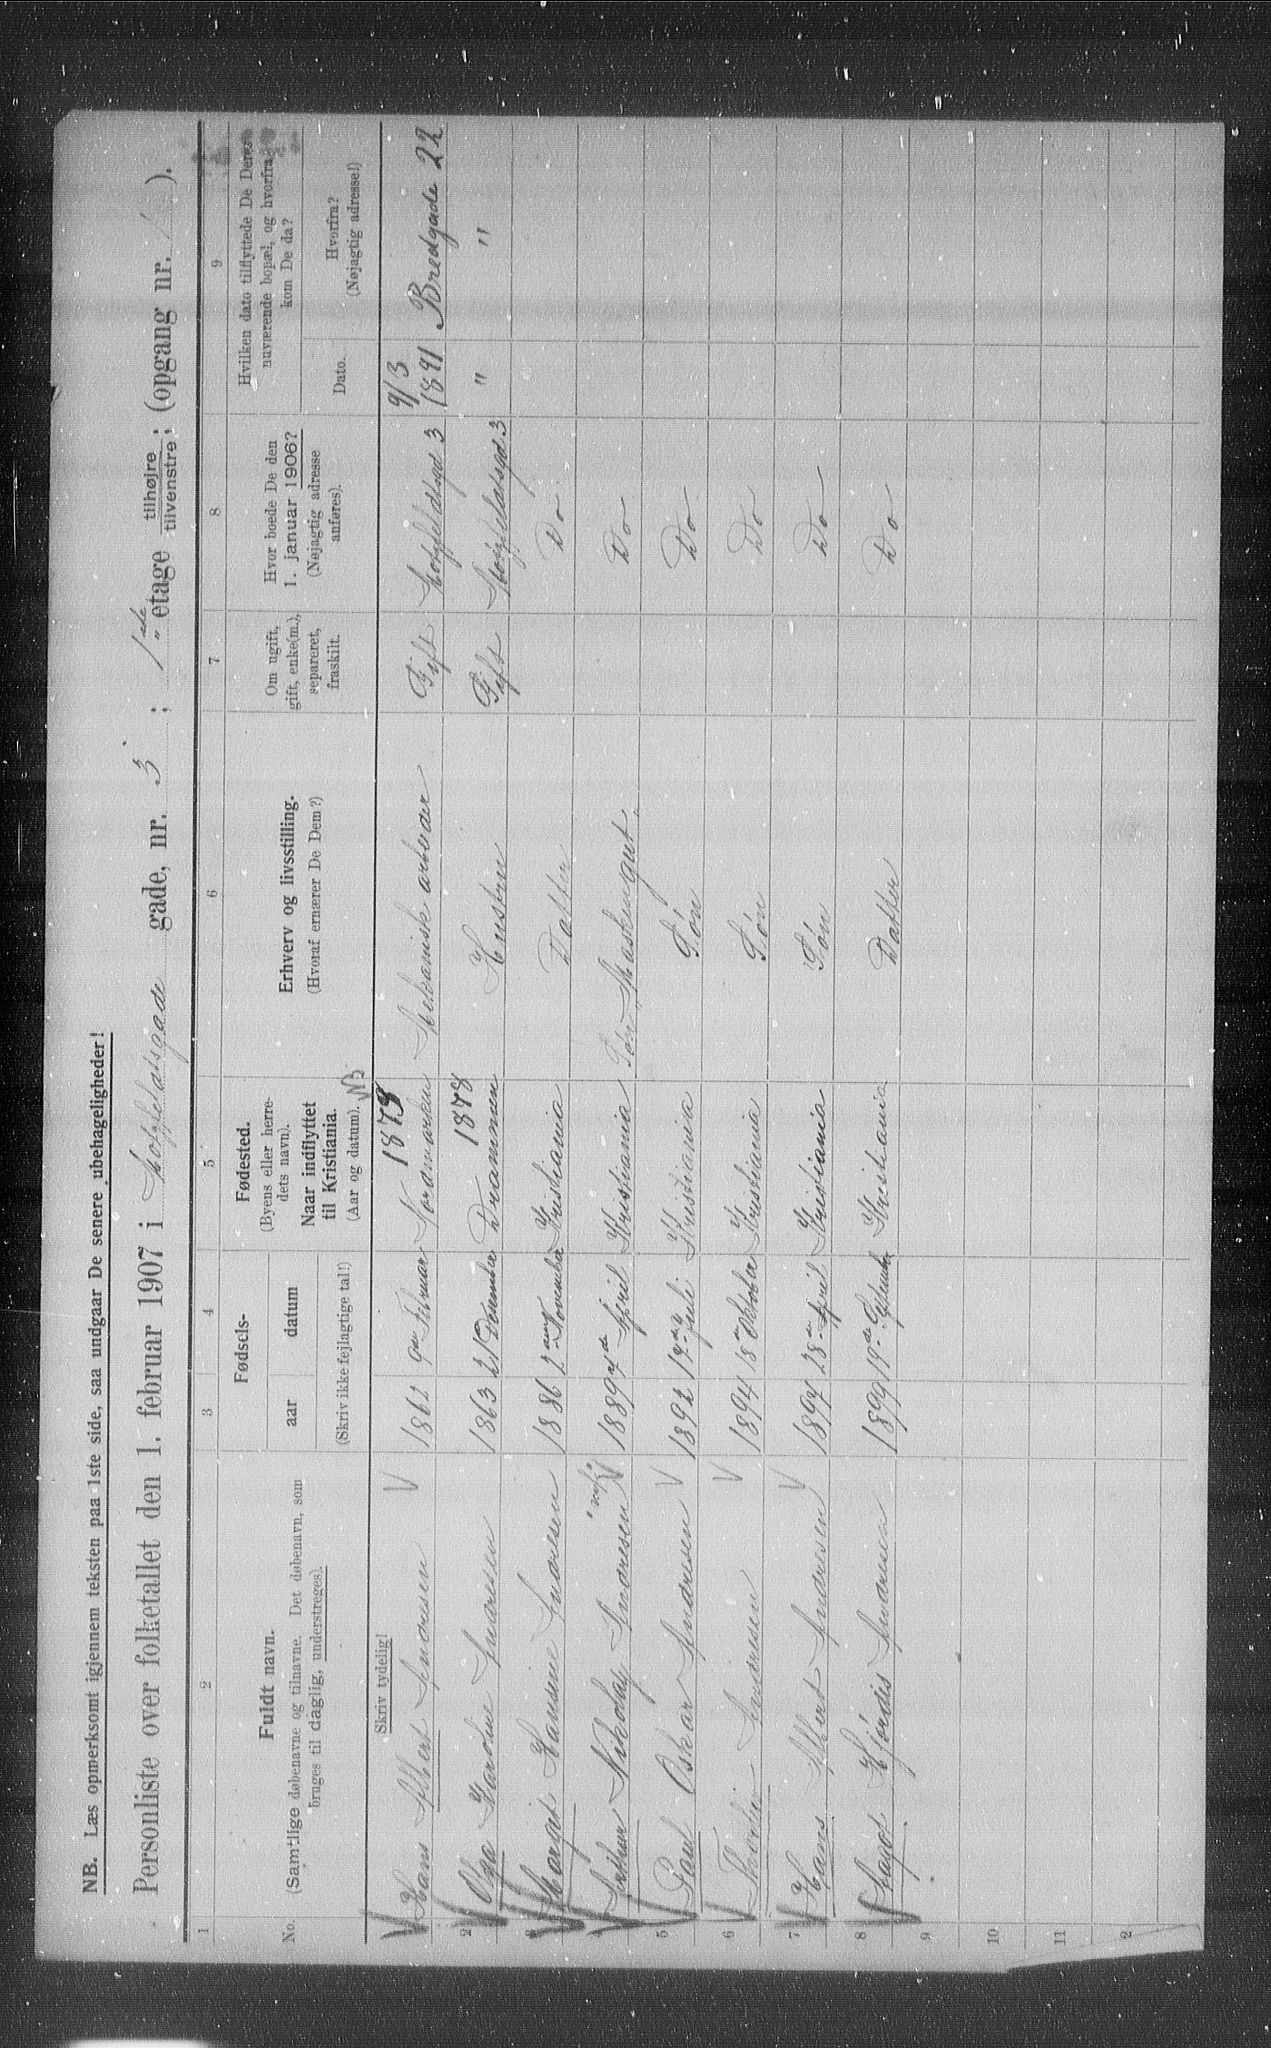 NB. Læs opmerksomt igjennem teksten paa 1ste side, saa undgaar De senere ubehageligheder!
Personliste over folketallet den 1. februar 1907 i gade, nr. 3 ; 1 etage tilhøjre tilvenstre ; (opgang nr. ).
1 2 3 4 5 6 7 8 9
No.
Fuldt navn.
(Samtlige døbenavne og tilnavne. Det døbenavn, som
bruges til daglig, understreges).
Skriv tydelig!
Fødsels-
aar datum
(Skriv ikke fejlagtige tal!)
Fødested.
(Byens eller herre-
dets navn).
Naar indflyttet
til Kristiania.
(Aar og datum).
NB
Erhverv og livsstilling.
(Hvoraf ernærer De Dem?)
Om ugift,
gift, enke(m.),
separeret,
fraskilt.
Hvor boede De den
1. januar 1906?
(Nøjagtig adresse
anføres).
Hvilken dato tilflyttede De Deres
nuværende bopæl, og hvorfra
kom De da?
Dato.
Hvorfra?
(Nøjagtig adresse!)
1878 9/3
Hans Albert Andresen 1862 Februar Nordmarken Mekanisk arbeider Gift 3 1891 Bredgade 22
1878
2 Olga Karoline Andresen 1863 21 December Drammen Hustru Gift 3 " "
3 Margit Hansine Andresen 1886 2 November Kristiania Datter Do
4 Arthur Nikolay Andresen 1889 April Kristiania Søn, Maskingut Do
5 Paul Oskar Andresen 1892 Juli Kristiania Søn Do
6 Andresen 1894 18 Oktober Kristiania Søn Do
7 Hans Albert Andresen 1897 28 April Kristiania Søn Do
8 Aagot Hjørdis Andresen 1899 19 Kristiania Datter Do
9
10
11
2